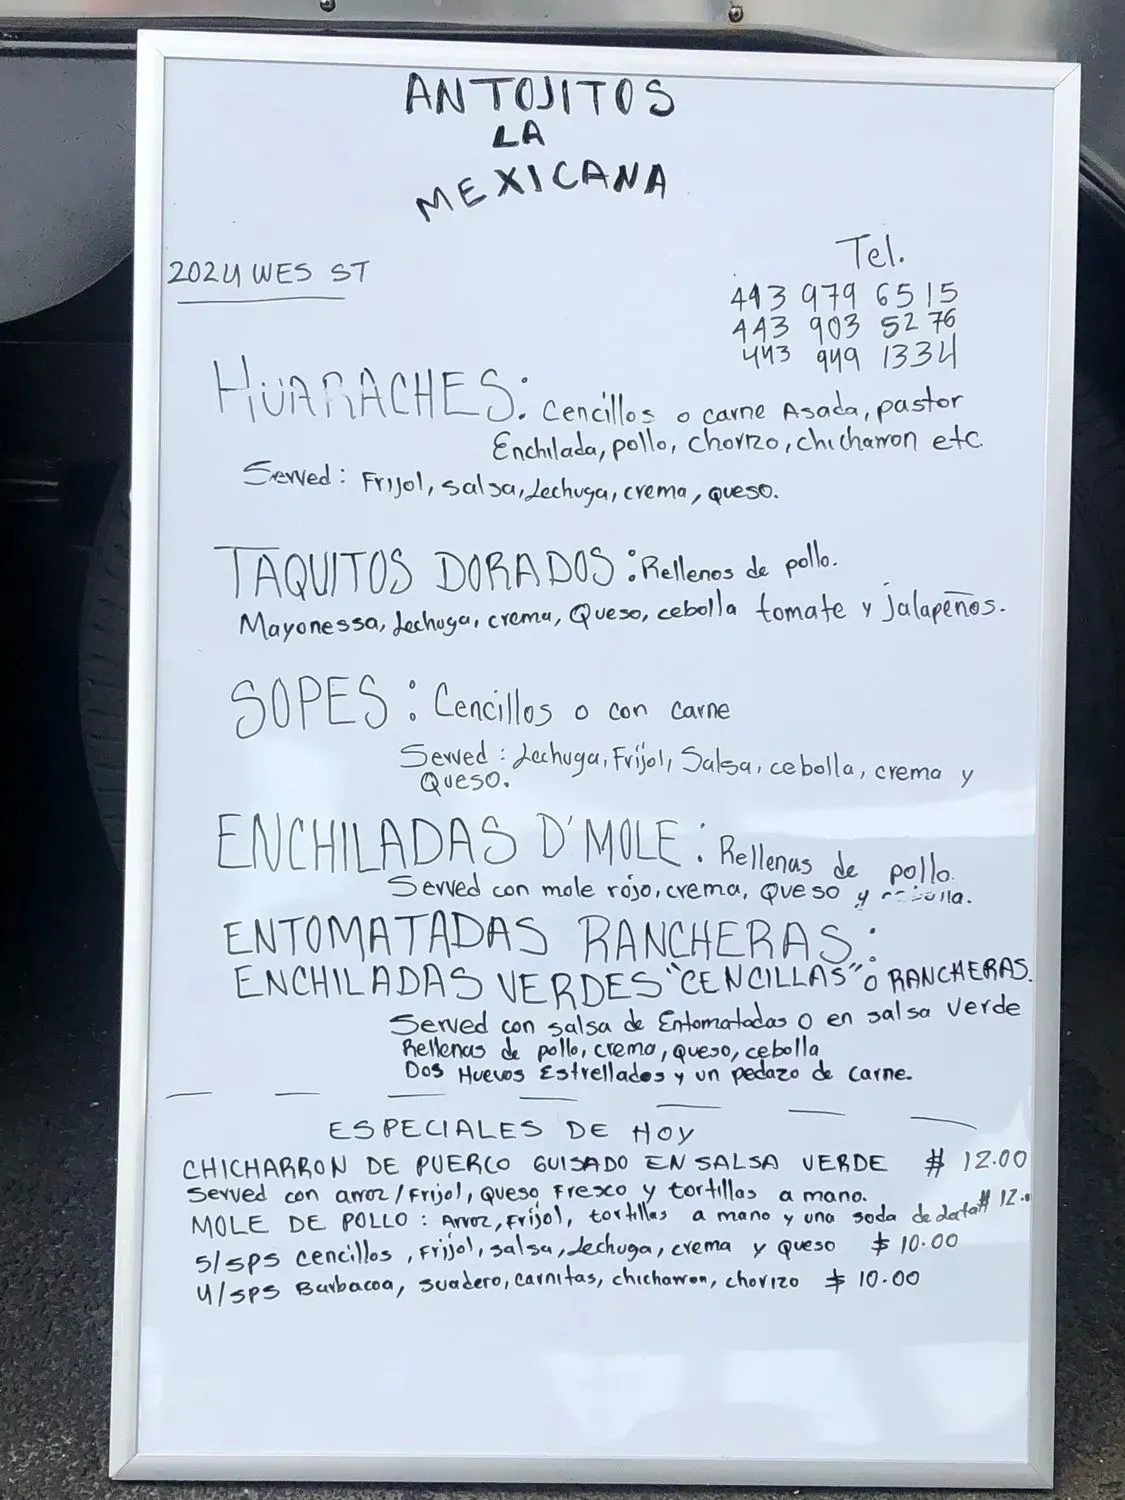 ANTOJITOS
LA
MEXICANA
2024 WES ST
Tel.
443 979 6515
443 903 5276
443 949 1334
HUARACHES: Cencillos o carne Asada, pastor
Enchilada, pollo, chorizo, chicharron etc.
Served: Frijol, salsa, Lechuga, crema, queso.
TAQUITOS DORADOS: Rellenos de pollo.
Mayonessa, Lechuga, crema, Queso, cebolla tomate y jalapeños.
SOPES: Cencillos o con carne
Served: Lechuga, Frijol, Salsa, cebolla, crema y
Queso.
ENCHILADAS D'MOLE: Rellenas de pollo.
Served con mole rojo, crema, queso y cebolla.
ENTOMATADAS RANCHERAS:
ENCHILADAS VERDES "CENCILLAS" o RANCHERAS.
Served con salsa de Entomatadas O en salsa verde
Rellenas de pollo, crema, queso, cebolla
Dos Huevos Estrellados y un pedazo de carne.
ESPECIALES DE HOY
CHICHARRON DE PUERCO GUISADO EN SALSA VERDE $ 12.00
Served con arroz/Frijol, queso Fresco y tortillas a mano.
MOLE DE POLLO: Arroz, Frijol, tortillas a mano y una soda de lata $ 12.00
5/SPS cencillos, Frijol, salsa, Lechuga, crema y queso $ 10.00
4/SPS Barbacoa, suadero, carnitas, chicharron, chorizo $ 10.00